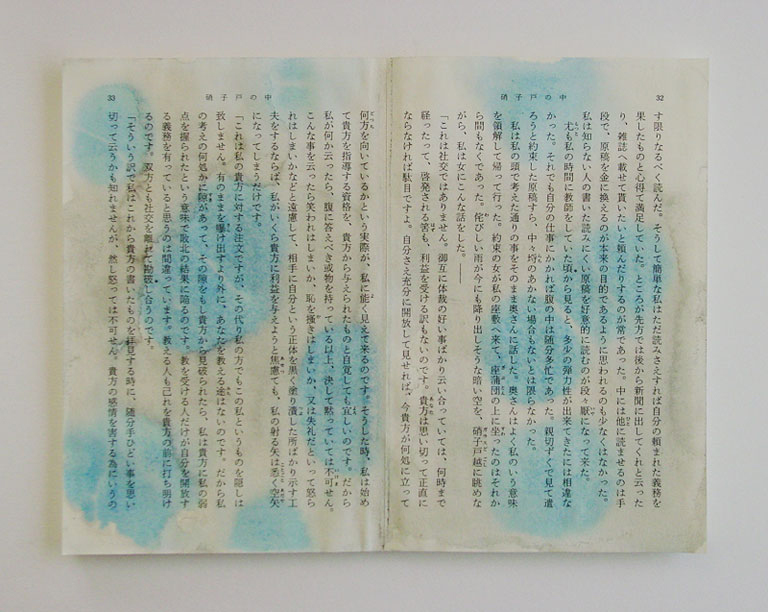 32
硝子戸の中
す限りなるべく読んだ。そうして簡単な私はただ読みさえすれば自分の頼まれた義務を
果したものと心得て満足していた。ところが先方では後から新聞に出してくれと云った
り、雑誌へ載せて貰いたいと頼んだりするのが常であった。中には他に読ませるのは手
段で、原稿を金に換えるのが本来の目的であるように思われるのも少なくはなかった。
私は知らない人の書いた読みにくい原稿を好意的に読むのが段々厭になって来た。
尤も私の時間に教師をしていた頃から見ると、多少の弾力性が出来てきたには相違な
かった。それでも自分の仕事にかかれば腹の中は随分多忙であった。親切ずくで見て遣
ろうと約束した原稿すら、中々埒のあかない場合もないとは限らなかった。
私は私の頭で考えた通りの事をそのまま奥さんに話した。奥さんはよく私のいう意味
を領解して帰って行った。約束の女が私の座敷へ来て、座蒲団の上に坐ったのはそれか
ら間もなくであった。侘びしい雨が今にも降り出しそうな暗い空を、硝子戸越に眺めな
がら、私は女にこんな話をした。――
「これは社交ではありません。御互に体裁の好い事ばかり云い合っていては、何時まで
経ったって、啓発される筈も、利益を受ける訳もないのです。貴方は思い切って正直に
ならなければ駄目ですよ。自分さえ充分に開放して見せれば、今貴方が何処に立って
33
硝子戸の中
何方を向いているかという実際が、私に能く見えて来るのです。そうした時、私は始め
て貴方を指導する資格を、貴方から与えられたものと自覚しても宜しいのです。だから
私が何か云ったら、腹に答えべき或物を持っている以上、決して黙っていては不可せん。
こんな事を云ったら笑われはしまいか、恥を掻きはしまいか、又は失礼だといって怒ら
れはしまいかなどと遠慮して、相手に自分という正体を黒く塗り潰した所ばかり示す工
夫をするならば、私がいくら貴方に利益を与えようと焦慮ても、私の射る矢は悉く空矢
になってしまうだけです。
「これは私の貴方に対する注文ですが、その代り私の方でもこの私というものを隠しは
致しません。有のままを曝け出すより外に、あなたを教える途はないのです。だから私
の考えの何処かに隙があって、その隙をもし貴方から見破られたら、私は貴方に私の弱
点を握られたという意味で敗北の結果に陥るのです。教を受ける人だけが自分を開放す
る義務を有っていると思うのは間違っています。教える人も己れを貴方の前に打ち明け
るのです。双方とも社交を離れて勘破し合うのです。
「そういう訳で私はこれから貴方の書いたものを拝見する時に、随分手ひどい事を思い
切って云うかも知れませんが、然し怒っては不可せん。貴方の感情を害する為にいうの